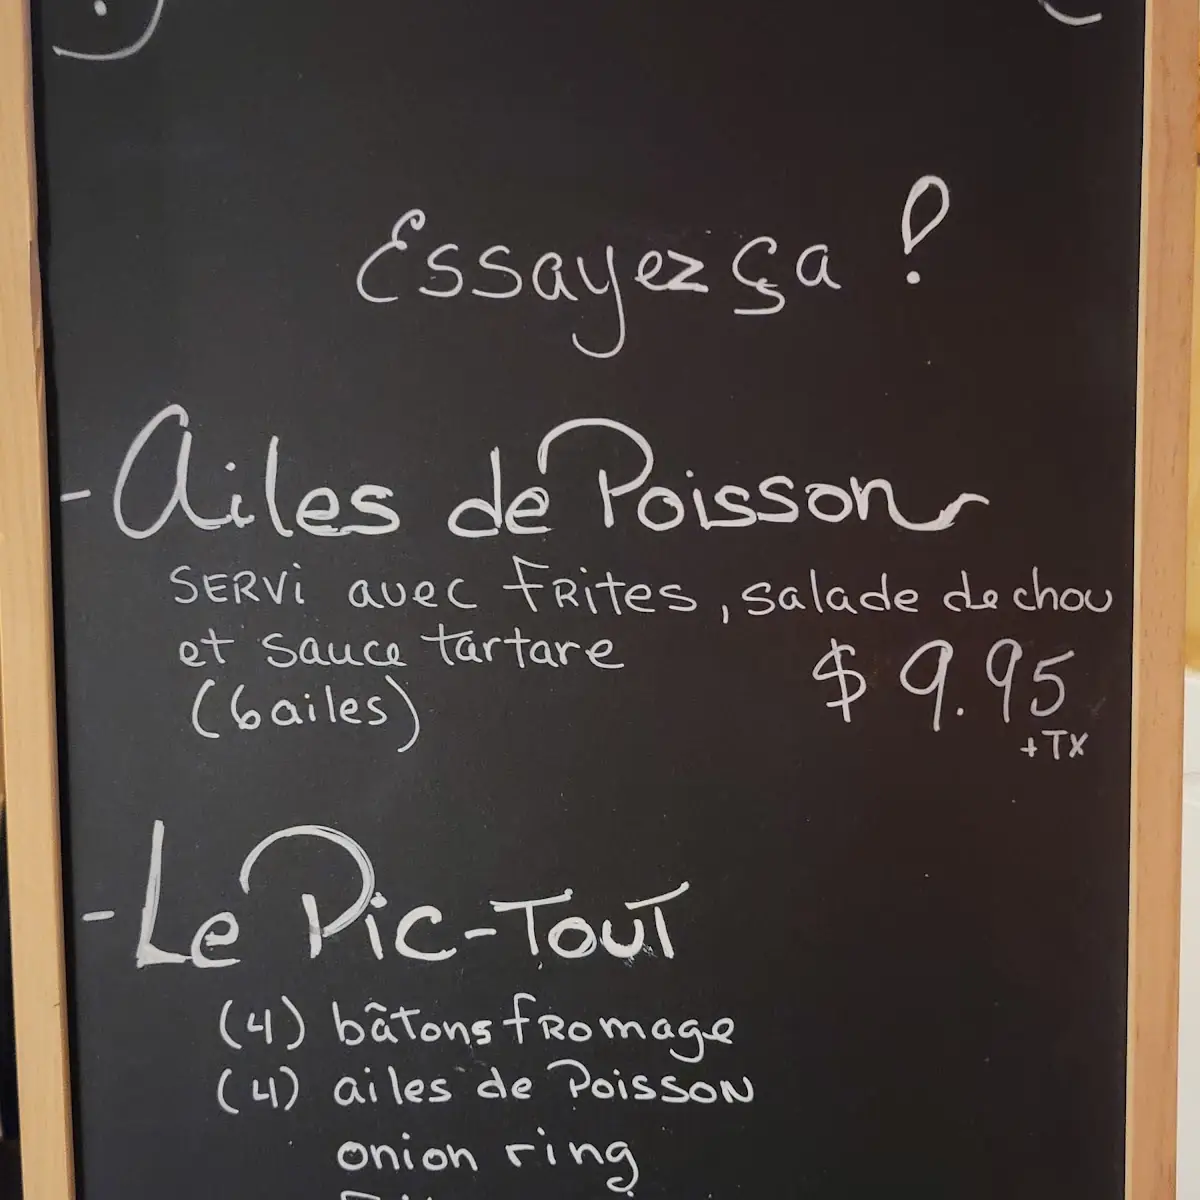 Essayez ça !
- Ailes de Poisson
SERVi avec frites, salade de chou
et sauce tartare
(6 ailes)
$ 9.95
+TX
- Le Pic-Tout
(4) bâtons fromage
(4) ailes de Poisson
onion ring